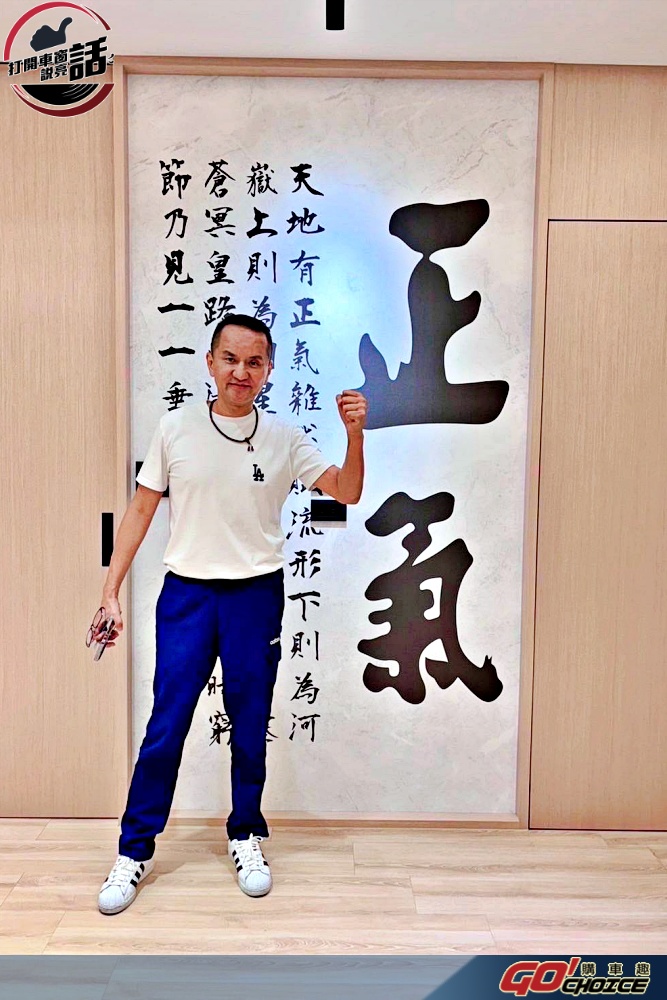 打開車窗
說亮話
正氣
天地有正氣雜 流形下則為河
嶽上則為 星
蒼冥皇路 時窮
節乃見一一垂
LA
adidas
GO! 購車趣
CHOICE